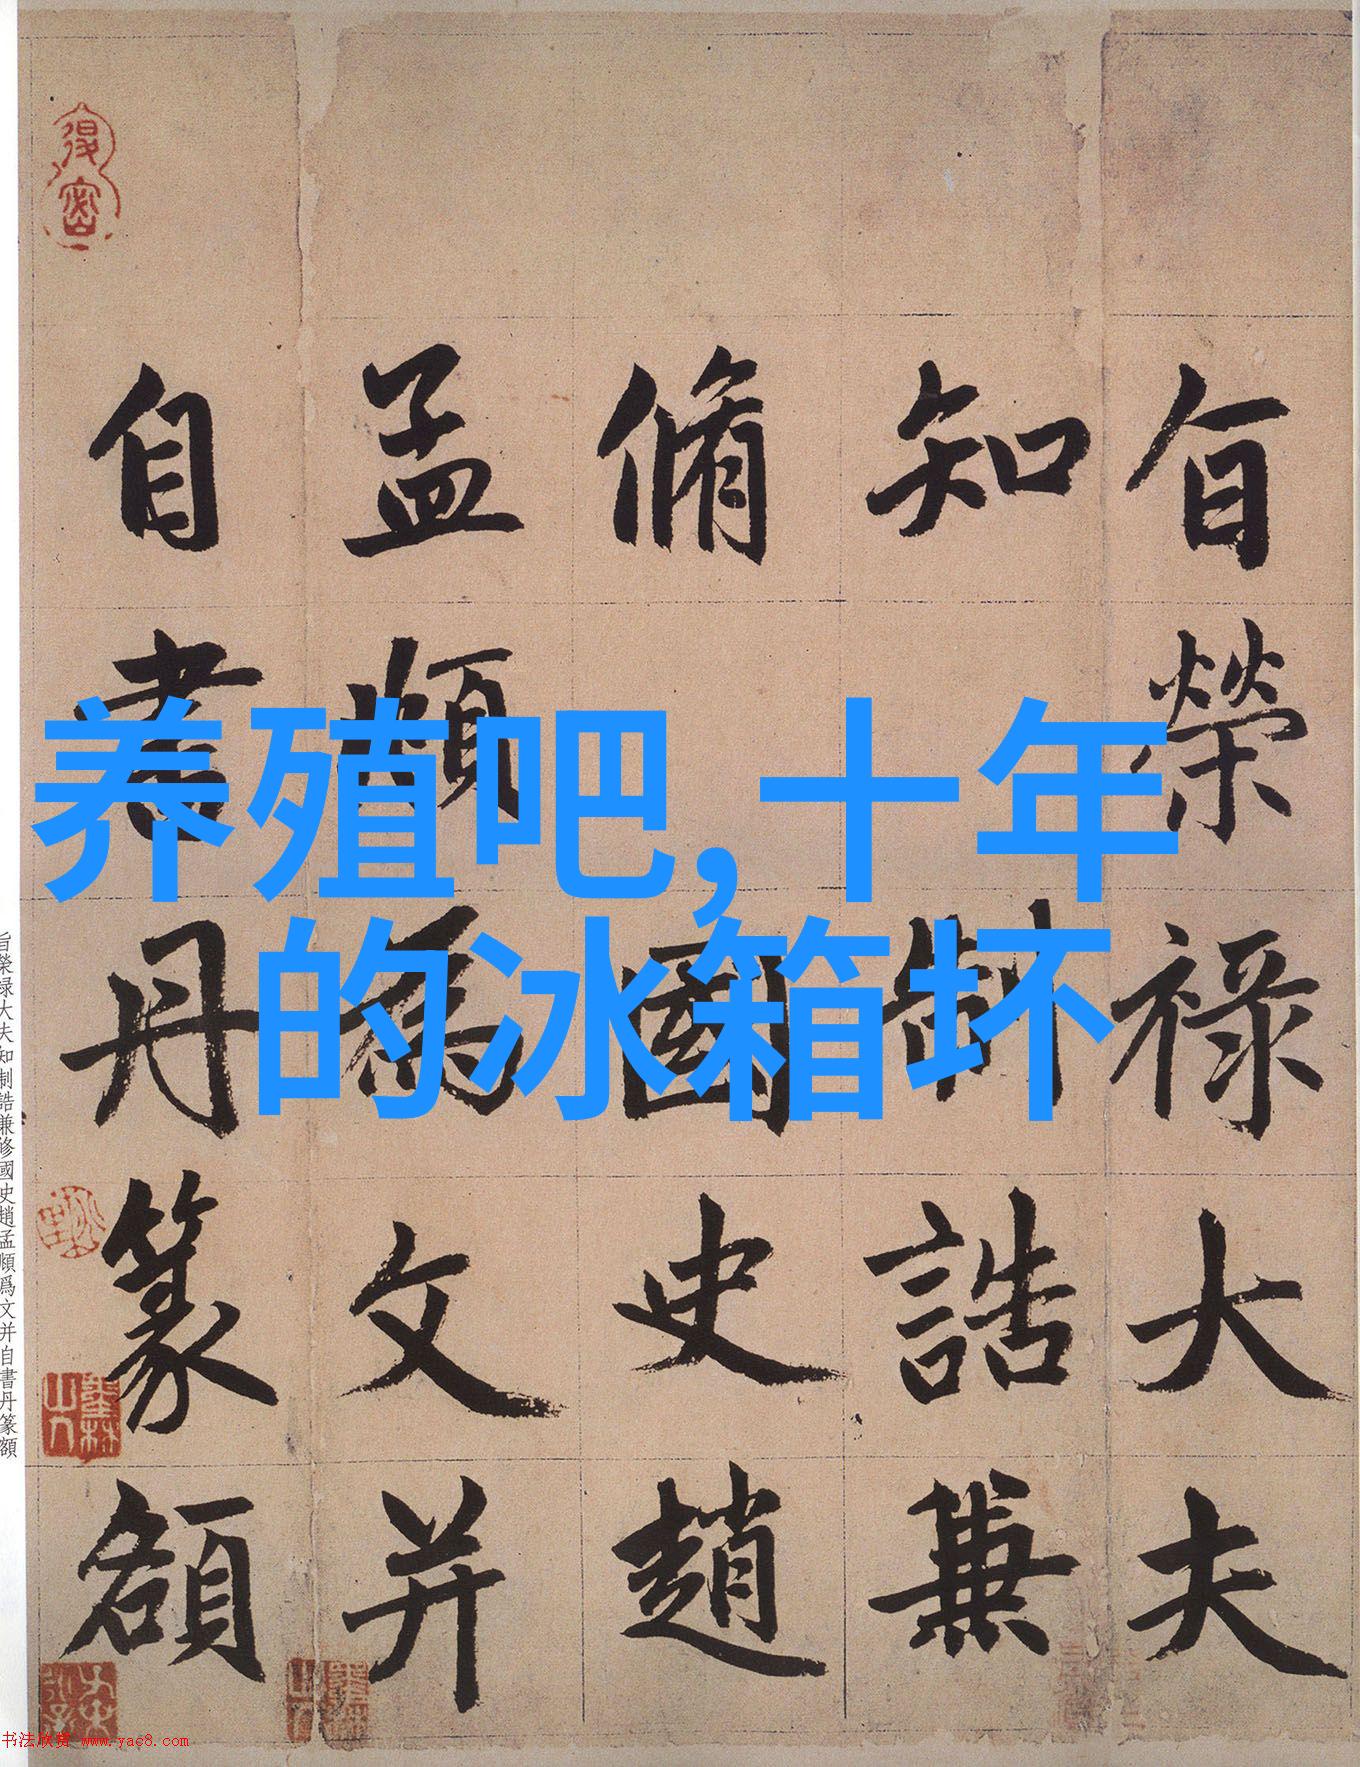 旨榮祿大夫
知制誥兼
脩國史趙
孟頫為文并
自書丹篆額
养殖吧,十年
的冰箱坏
旨榮禄大夫知制誥兼修國史趙孟頫爲文并自書丹篆額
书法欣赏 www.yac8.com